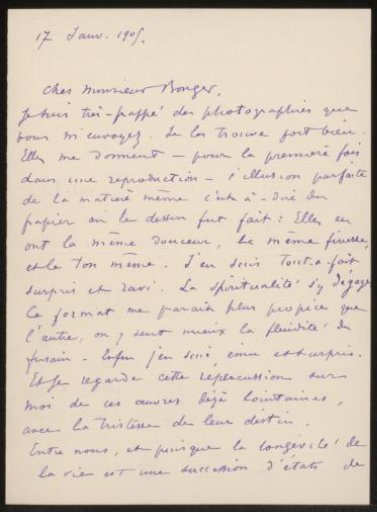 17 Janv. 1905.
Cher Monsieur Bonger,
Je suis très-frappé des photographies que
vous m'envoyez. Je les trouve fort bien.
Elles me donnent — pour la première fois
dans une reproduction — l'illusion parfaite
de la matière même c'est-à-dire du
papier où le dessin fut fait : Elles en
ont la même douceur, la même finesse,
et le ton même. J'en suis tout-à-fait
surpris et ravi. La spiritualité s'y dégage
Ce format me paraît plus propice que
l'autre, on y sent mieux la fluidité du
fusain. Enfin j'en suis ému et surpris.
Et je regarde cette répercussion sur
moi de ces œuvres déjà lointaines,
avec la tristesse de leur destin.
Entre nous, et puisque la longévité de
la vie est une succession d'états de